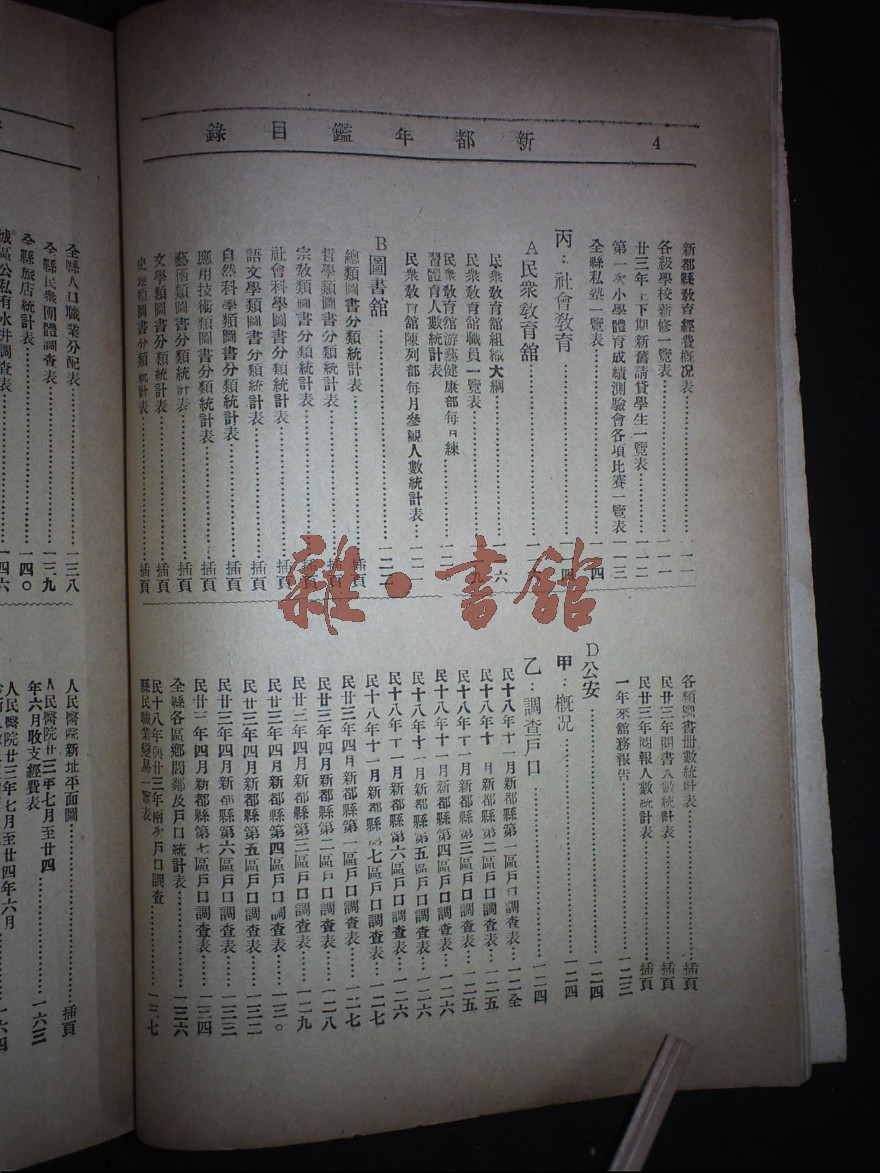 新都年鑑目錄
4
新都縣敎育經費槪况表
各級學校新修一覽表……一一一
廿三年上下期新舊請貸學生一覽表……一一二
第一次小學體育成績測驗會各項比賽一覽表 一一三
全縣私塾一覽表……一一四
丙：社會敎育……一一四
A民衆敎育舘……一一六
民衆敎育舘組織大綱……一一六
民衆敎育舘職員一覽表
民衆敎育舘游藝健康部每日練
習體育人數統計表
民衆敎育舘陳列部每月參觀人數統計表
B圖書舘……一二二
總類圖書分類統計表……插頁
哲學類圖書分類統計表……插頁
宗敎類圖書分類統計表……插頁
社會科學圖書分類統計表……插頁
語文學類圖書分類統計表……插頁
自然科學類圖書分類統計表……插頁
應用技術類圖書分類統計表……插頁
藝術類圖書分類統計表……插頁
文學類圖書分類統計表……插頁
史地類圖書分類統計表……插頁
各類圖書册數統計表……插頁
民廿三年閱書人數統計表……插頁
民廿三年閱報人數統計表……插頁
一年來舘務報告……一二三
D公安……一二四
甲：槪况……一二四
乙：調查戶口……一二四
民十八年十一月新都縣第一區戶口調查表……一二全
民十八年十一月新都縣第二區戶口調查表……一二五
民十八年十一月新都縣第三區戶口調查表……一二五
民十八年十一月新都縣第四區戶口調查表……一二六
民十八年十一月新都縣第五區戶口調查表……一二六
民十八年十一月新都縣第六區戶口調查表……一二六
民十八年十一月新都縣第七區戶口調查表……一二七
民廿三年四月新都縣第一區戶口調查表……一二七
民廿三年四月新都縣第二區戶口調查表……一二八
民廿三年四月新都縣第三區戶口調查表……一二九
民廿三年四月新都縣第四區戶口調查表……一三〇
民廿三年四月新都縣第五區戶口調查表……一三二
民廿三年四月新都縣第六區戶口調查表……一三三
民廿三年四月新都縣第七區戶口調查表……一三四
全縣各區鄉閭鄰及戶口統計表……一三六
民十八年與廿三年兩次戶口調查
縣民職業變易一覽表……一三七
全縣人口職業分配表……一三八
全縣民衆團體調查表……一三九
全縣旅店統計表……一四〇
城區公私有水井調查表……一四六
人民醫院新址平面圖……插頁
人民醫院廿三年七月至廿四
年六月收支經費表……一六三
人民醫院廿三年七月至廿四年六月
雜·書舘